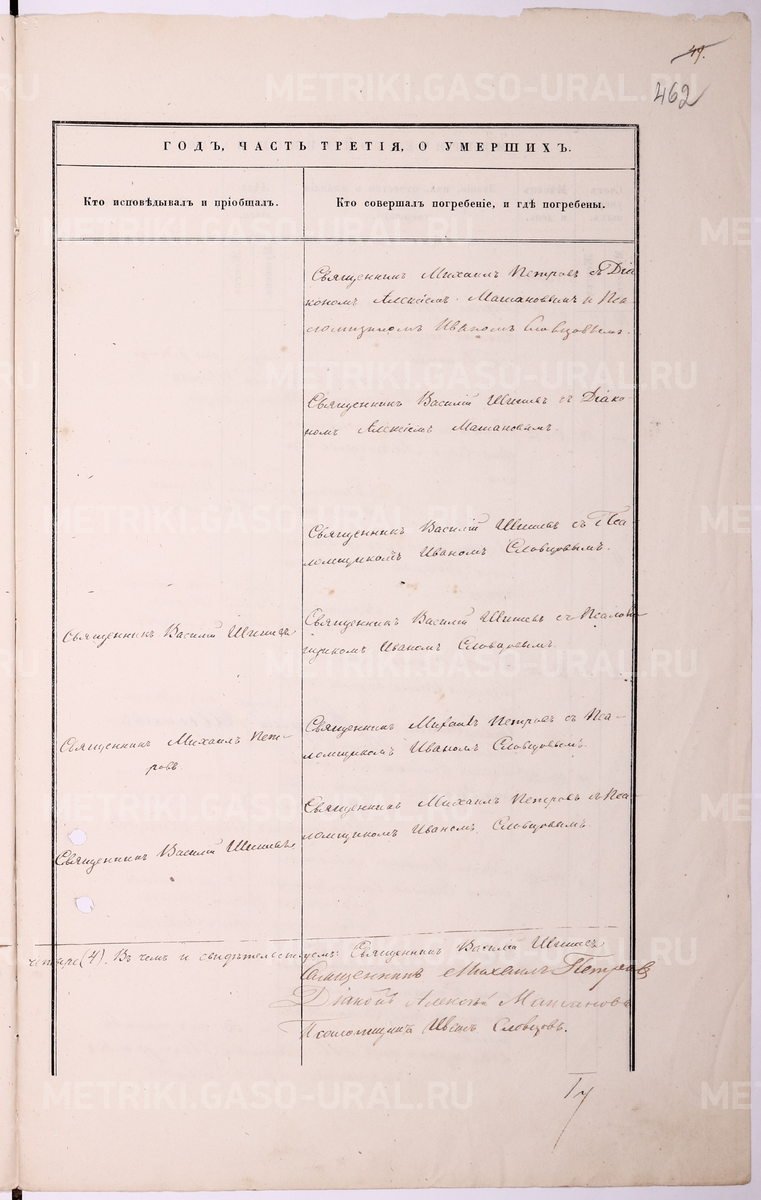 49.
462
ГОДЪ, ЧАСТЬ ТРЕТІЯ, О УМЕРШИХЪ.
Кто исповѣдывалъ и пріобщалъ.
Кто совершалъ погребеніе, и гдѣ погребены.
Священникъ Михаилъ Петровъ съ Діа
кономъ Алексіемъ Матановымъ и Пса-
ломщикомъ Иваномъ Словцовымъ.
Священникъ Василій Шишевъ съ Діако-
номъ Алексіемъ Матановымъ.
Священникъ Василій Шишевъ съ Пса-
ломщикомъ Иваномъ Словцовымъ.
Священникъ Василій Шишевъ
Священникъ Василій Шишевъ съ Псалом
щикомъ Иваномъ Словцовымъ.
Священникъ Михаилъ Пет-
ровъ.
Священникъ Михаилъ Петровъ съ Пса-
ломщикомъ Иваномъ Словцовымъ.
Священникъ Василій Шишевъ
Священникъ Михаилъ Петровъ съ Пса
ломщикомъ Иваномъ Словцовымъ
четыре (4). Въ чемъ и свидѣтельствуемъ: Священникъ Василій Шишевъ
Священникъ Михаилъ Петровъ
Діаконъ Алексѣй Матановъ
Псаломщикъ Иванъ Словцовъ.
METRIKI.GASO-URAL.RU